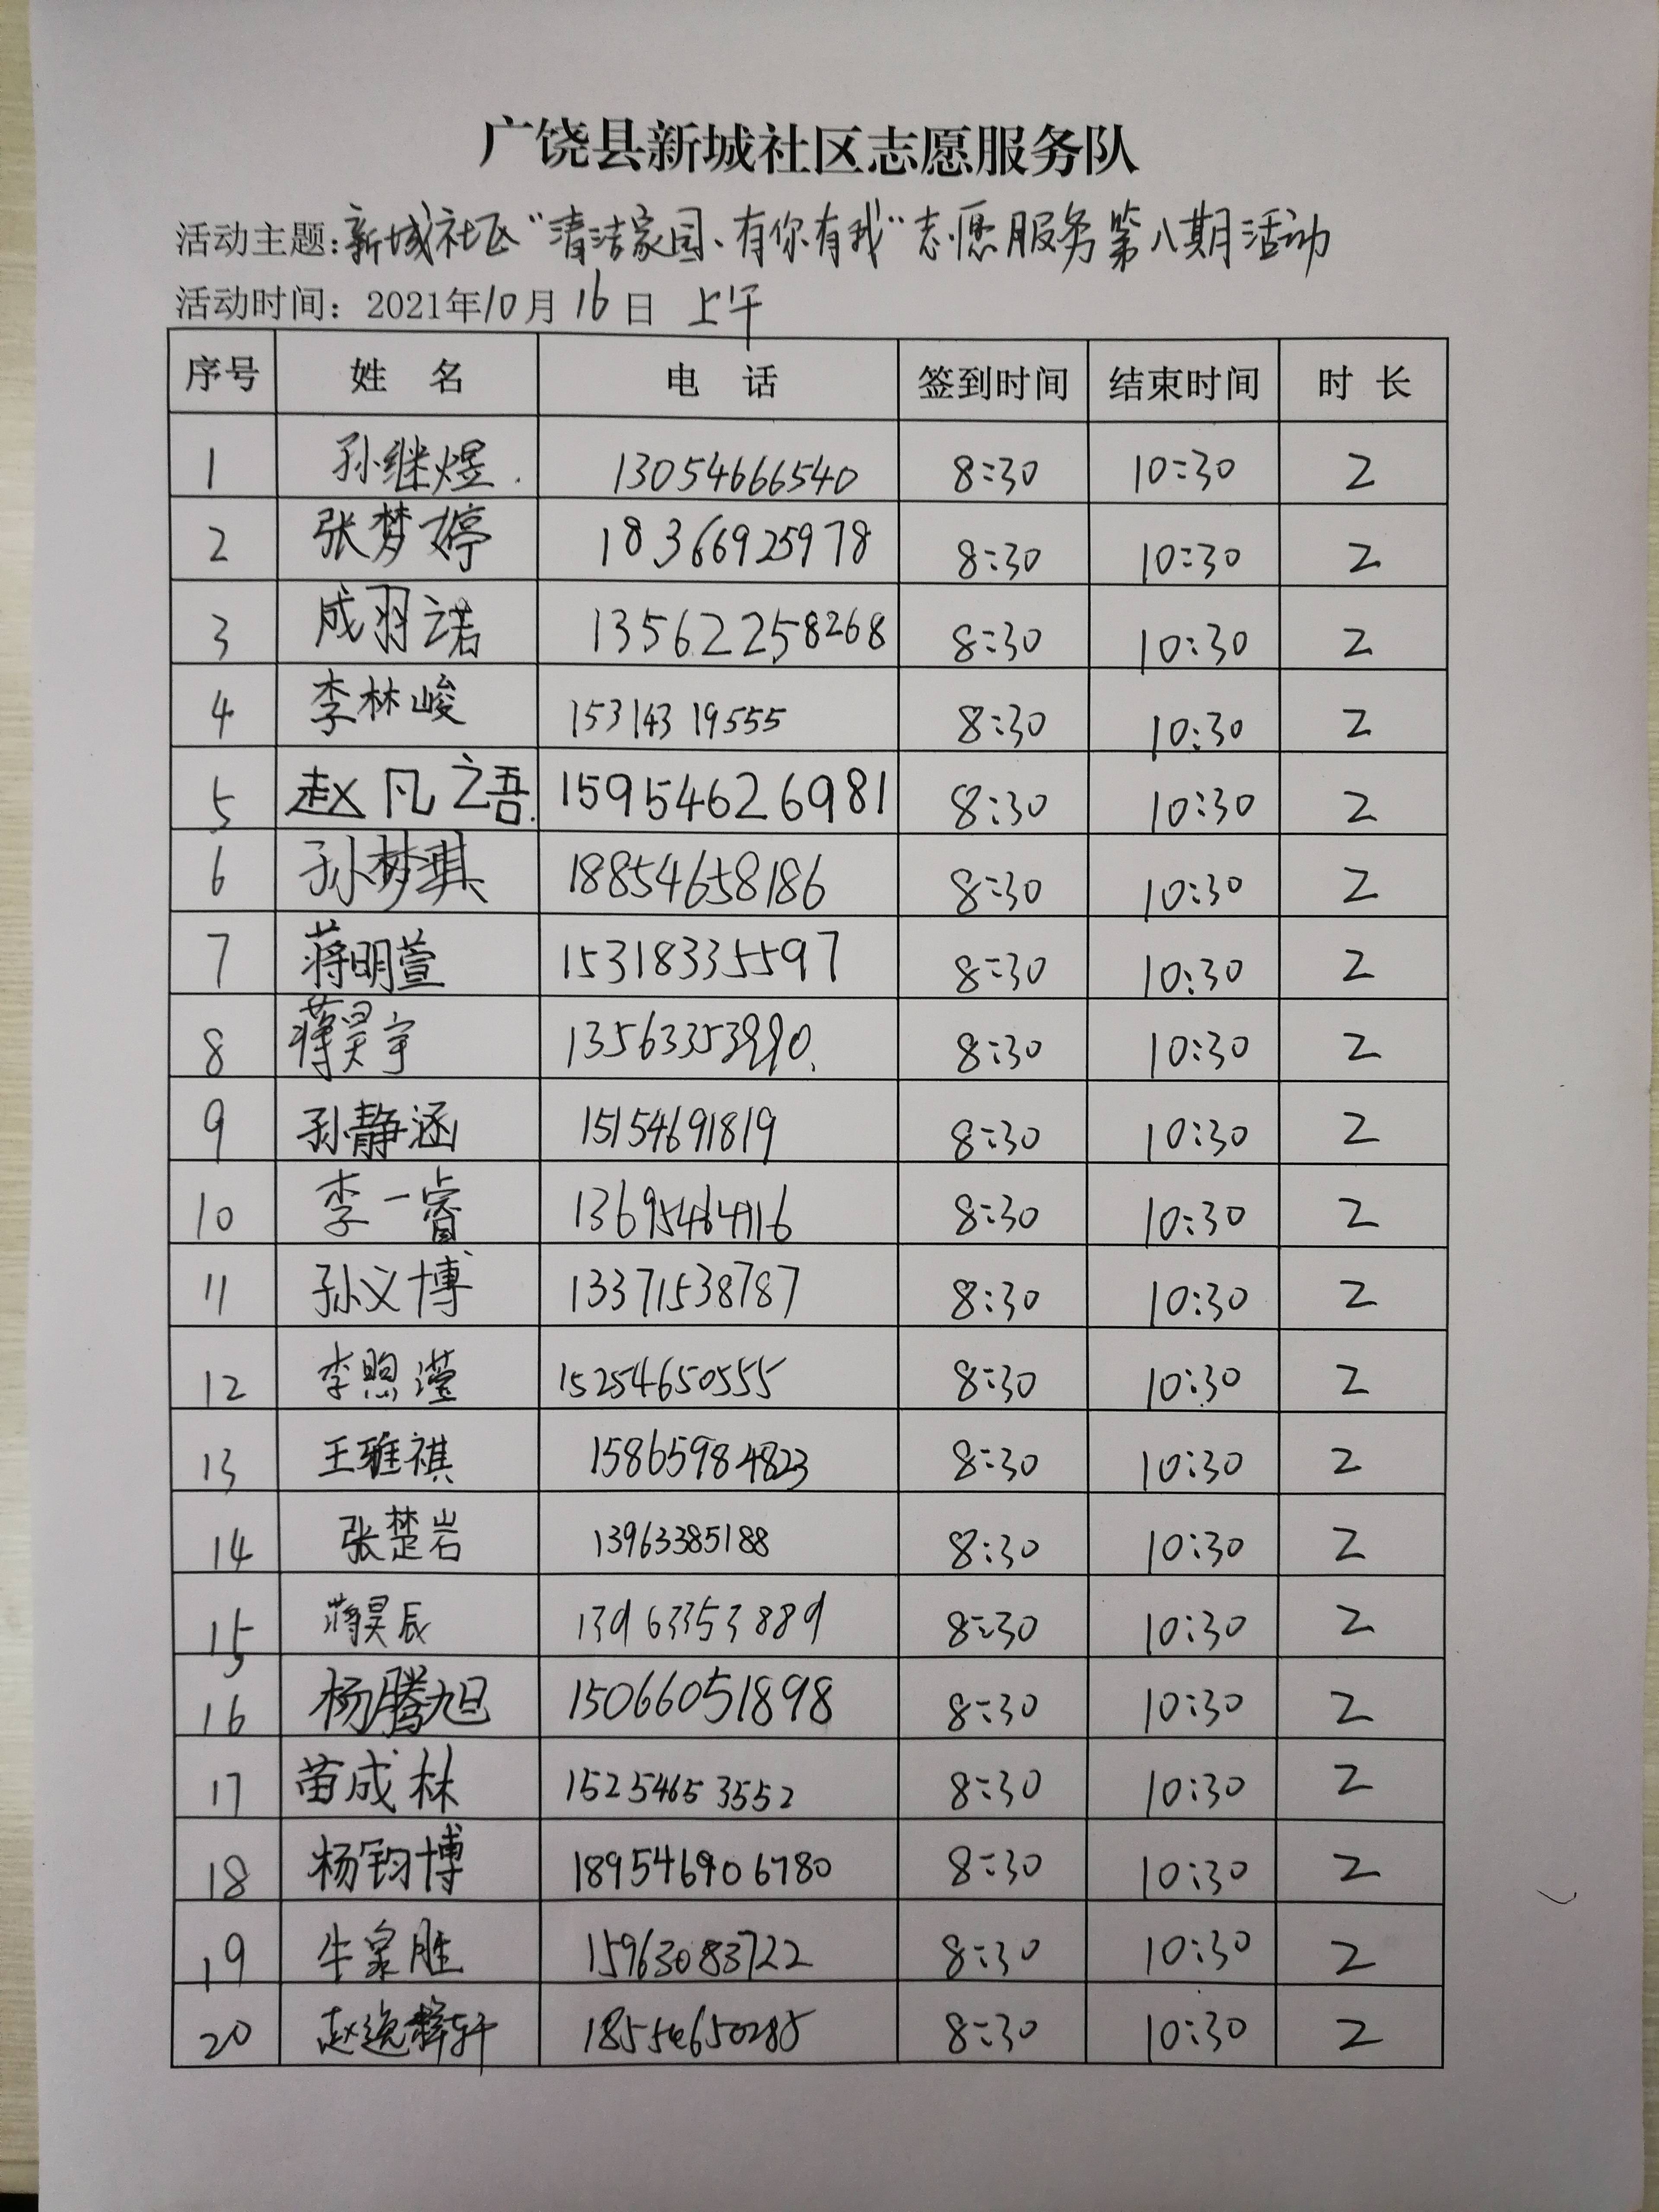 广饶县新城社区志愿服务队
活动主题:新城社区“清洁家园、有你有我”志愿服务第八期活动
活动时间：2021年10月16日 上午
序号 姓名 电话 签到时间 结束时间 时长
1 孙继煜. 13054666540 8:30 10:30 2
2 张梦婷 18366925978 8:30 10:30 2
3 成羽诺 13562258268 8:30 10:30 2
4 李林峻 15314319555 8:30 10:30 2
5 赵凡语. 15954626981 8:30 10:30 2
6 孙梦琪 18854658186 8:30 10:30 2
7 蒋明萱 15318335597 8:30 10:30 2
8 蒋昊宇 13563353990. 8:30 10:30 2
9 孙静涵 15154691819 8:30 10:30 2
10 李一睿 13695464116 8:30 10:30 2
11 孙义博 13371538787 8:30 10:30 2
12 李煦滢 15254650555 8:30 10:30 2
13 王雅祺 15865984823 8:30 10:30 2
14 张楚岩 13963385188 8:30 10:30 2
15 蒋昊辰 13963353889 8:30 10:30 2
16 杨腾旭 15066051898 8:30 10:30 2
17 苗成林 15254653552 8:30 10:30 2
18 杨钧博 189546906780 8:30 10:30 2
19 牛泉胜 15963083722 8:30 10:30 2
20 赵逸轩 18554650285 8:30 10:30 2